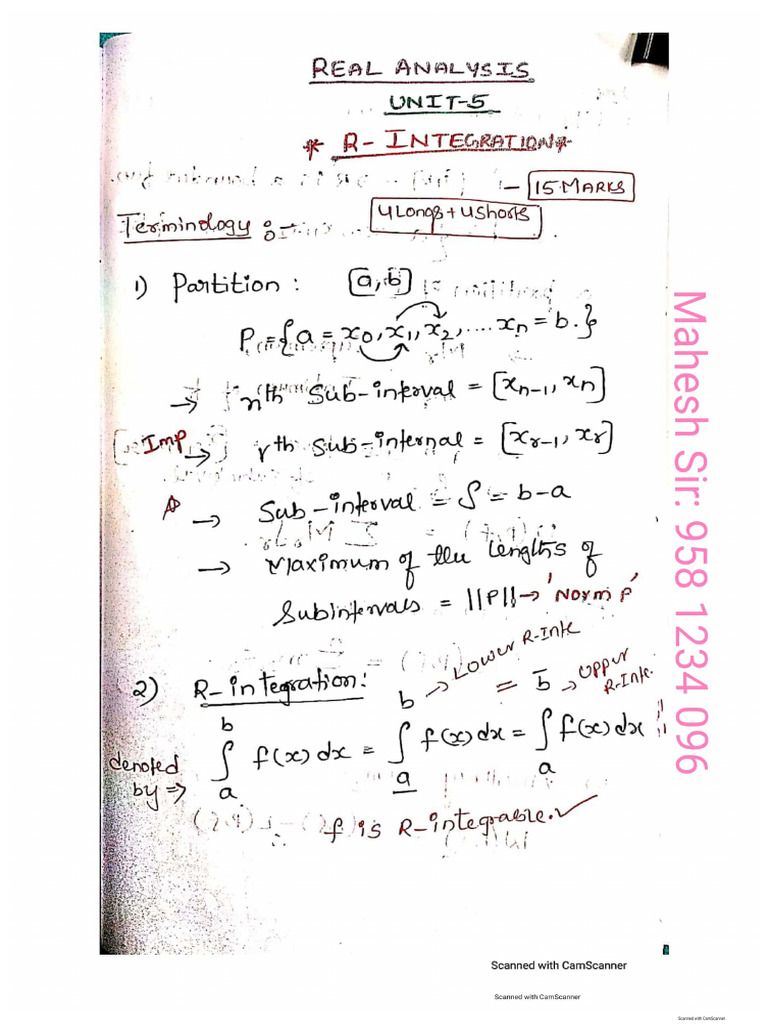 REAL ANALYSIS
UNIT-5
* R-INTEGRATION *
- 15 MARKS
4Longs + 4Shorts
Terminology :-
1) Partition : [a, b]
P = {a = x₀, x₁, x₂, .... xₙ = b.}
→ nth Sub-interval = [xₙ₋₁, xₙ]
Imp → rth Sub-internal = [xᵣ₋₁, xᵣ]
→ Sub-interval = δ = b-a
→ Maximum of the lengths of
Subintervals = ||P|| → 'Norm P'
2) R-integration:
b → Lower R-Inte
= b̄ → Upper R-Inte.
denoted by ⇒ ∫ₐᵇ f(x) dx = ∫ₐ f(x) dx = ∫ₐ f(x) dx
∴ f is R-integrable. ✓
Mahesh Sir: 958 1234 096
Scanned with CamScanner
Scanned with CamScanner
Scanned with CamScanner